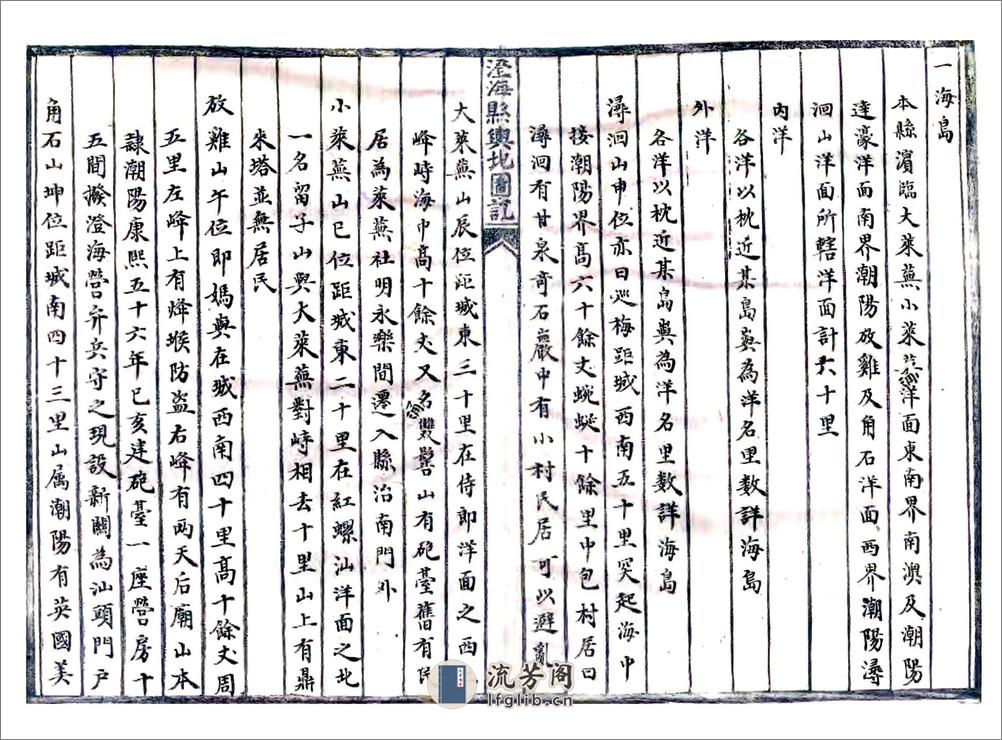 一海島
本縣濱臨大萊蕪小萊蕪洋面東南界南澳及潮陽
達濠洋面南界潮陽放雞及角石洋面西界潮陽潯
洄山洋面所轄洋面計六十里
內洋
各洋以枕近某島與為洋名里数詳海島
外洋
各洋以枕近某島與為洋名里数詳海島
潯洄山申位亦曰巡梅距城西南五十里突起海中
接潮陽界高六十餘丈蜿蜒十餘里中包村居曰
潯洄有甘泉奇石巖中有小村民居可以避亂
澄海縣輿地圖說
大萊蕪山辰位距城東三十里在侍郎洋面之西
峰峙海中高十餘丈又名雙髻山有砲臺舊有民
居為萊蕪社明永樂間遷入縣治南門外
小萊蕪山巳位距城東二十里在紅螺汕洋面之北
一名留子山與大萊蕪對峙相去十里山上有鼎
來塔並無居民
放雞山午位即媽與在城西南四十里高十餘丈周
五里左峰上有烽堠防盜右峰有兩天后廟山本
隸潮陽康熙五十六年己亥建砲臺一座營房十
五間撥澄海營弁兵守之現設新關為汕頭門戶
角石山坤位距城南四十三里山属潮陽有英國美
流芳阁
lfglib.cn